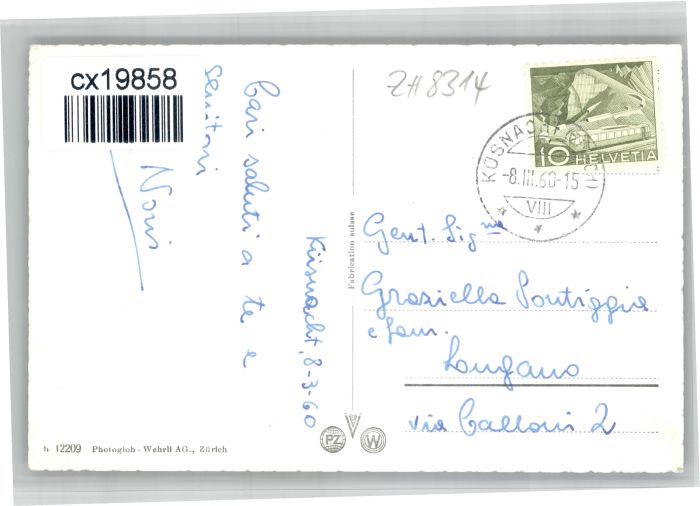 cx19858
ZH8314
10 HELVETIA
KÜSNACHT (ZÜRICH)
-8.III.60-15
VIII
Küsnacht, 8-3-60
Cari saluti a te e
genitori
Nori
Fabrication suisse
Gent. Sig.na
Graziella Pontiggia
e fam.
Lugano
via Balloni 2
PZ
W
h 12209 Photoglob-Wehrli AG., Zürich